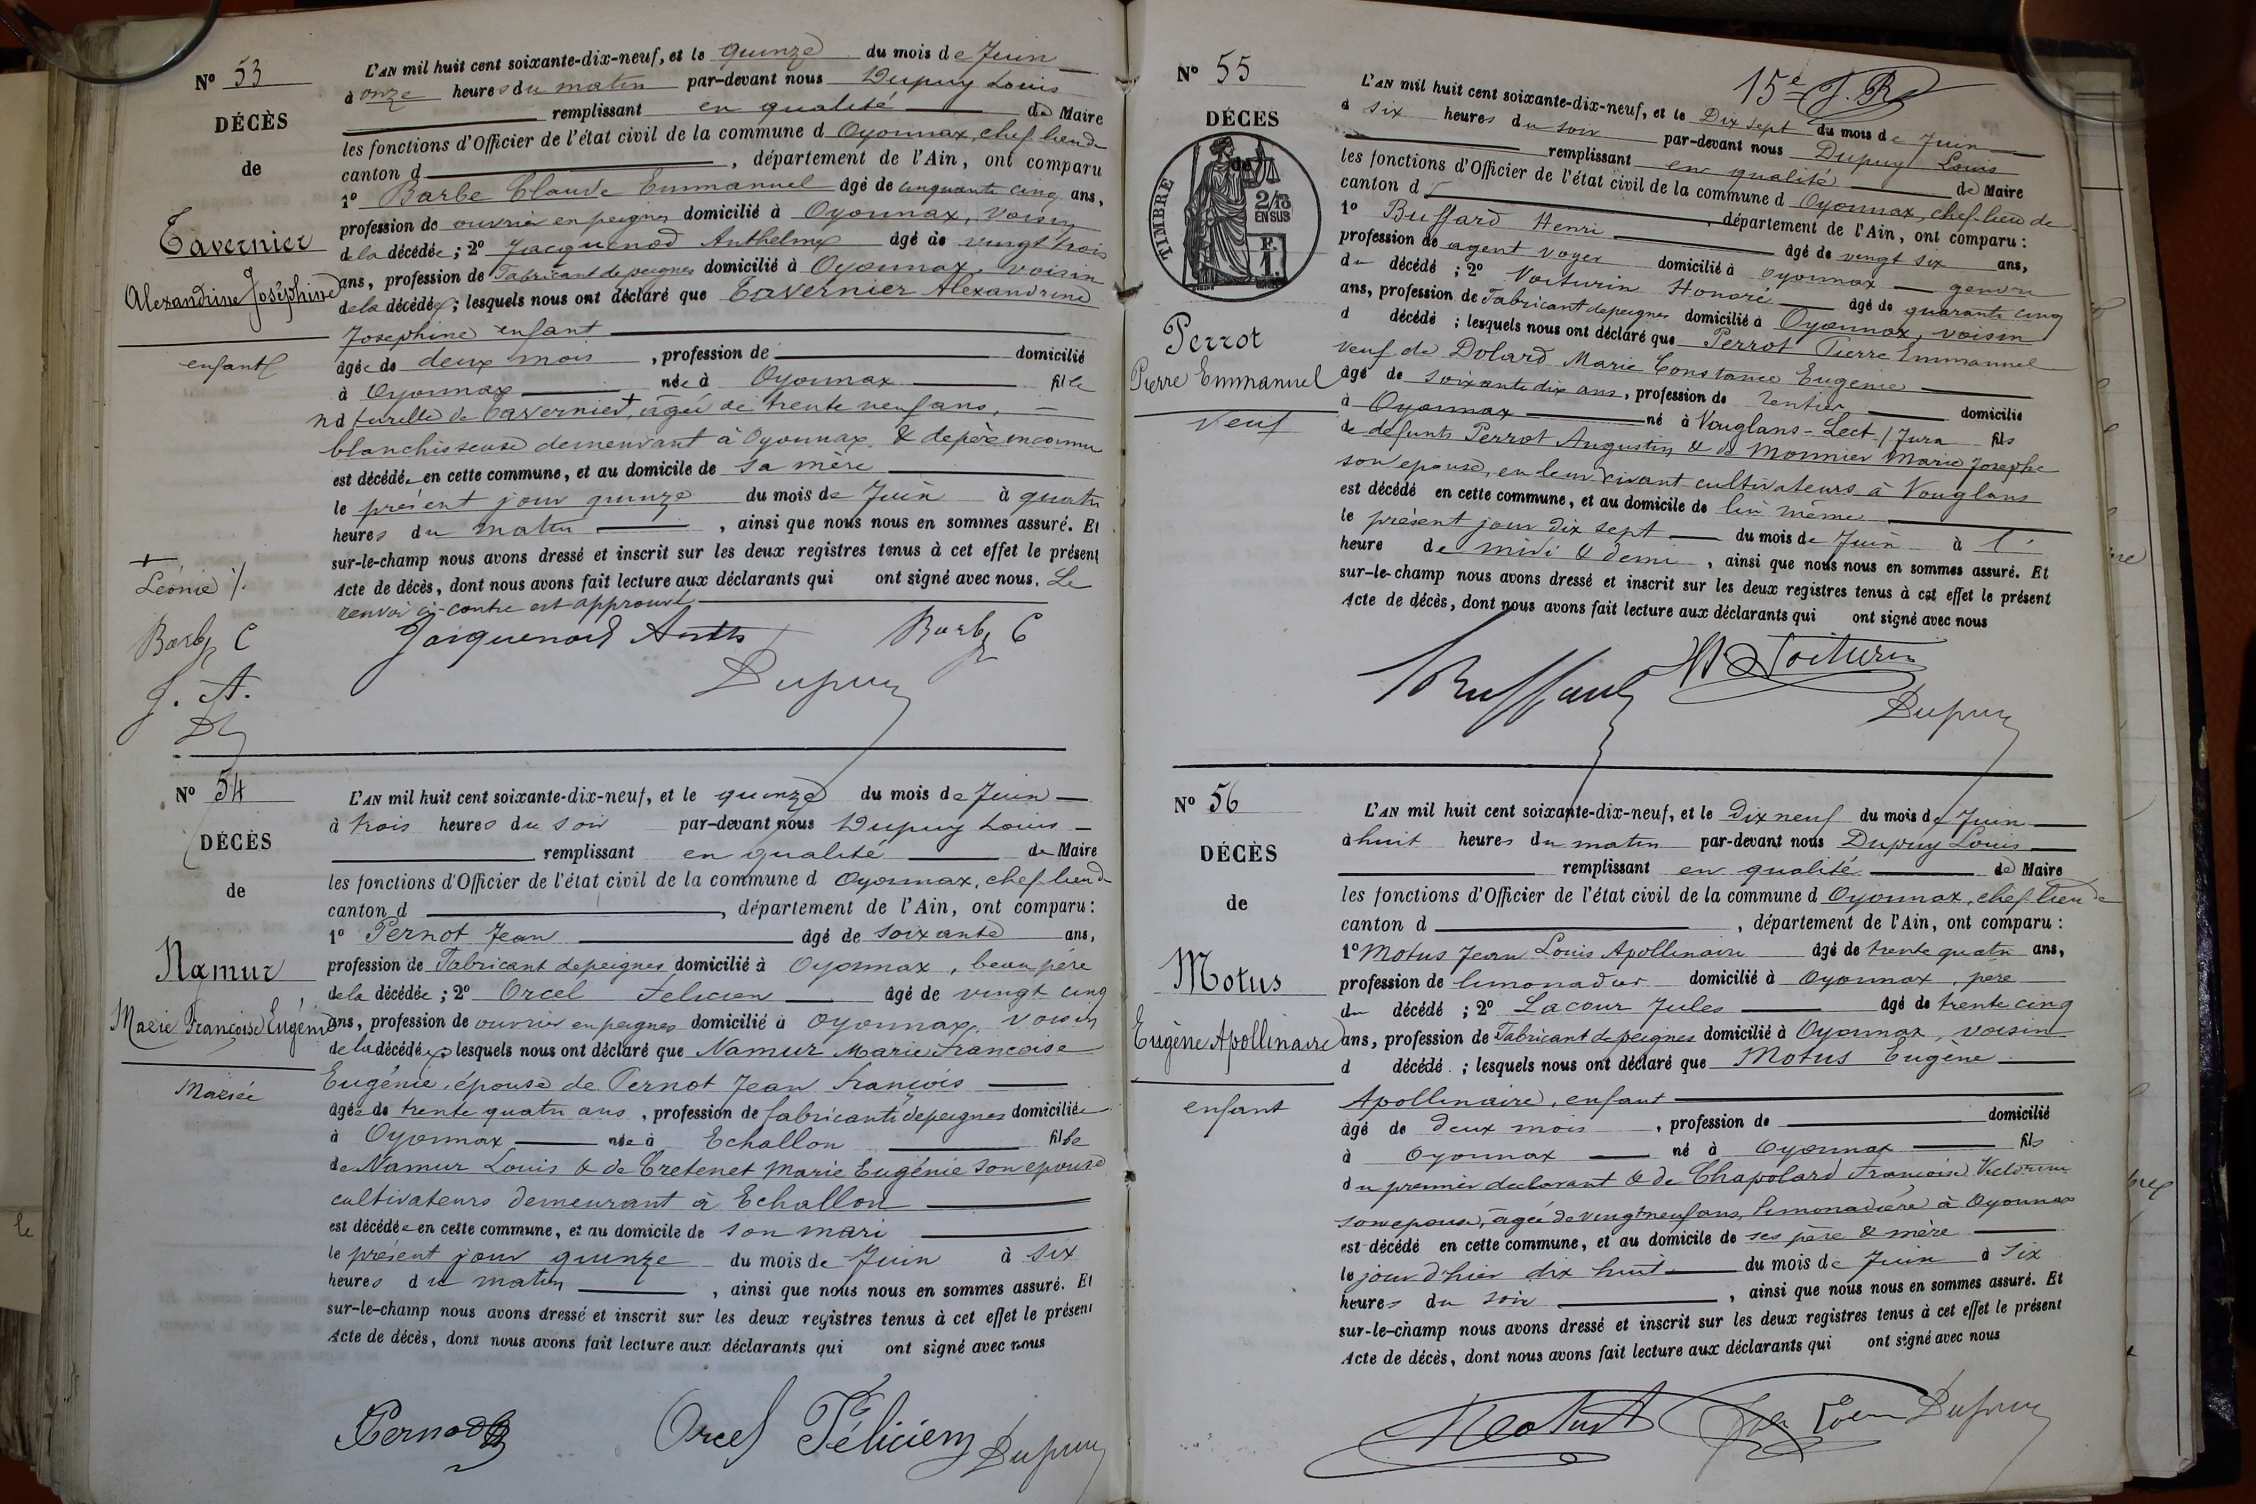 N° 53
DÉCÈS
de
Tavernier
Alexandrine Joséphine
enfant
L'AN mil huit cent soixante-dix-neuf, et le quinze du mois de Juin
à onze heures du matin par-devant nous Dupuy Louis
remplissant en qualité de Maire
les fonctions d'Officier de l'état civil de la commune d Oyonnax, chef lieu de
canton d , département de l'Ain, ont comparu
1° Barbe Claude Emmanuel âgé de cinquante cinq ans,
profession de ouvrier en peignes domicilié à Oyonnax, voisin
de la décédée ; 2° Jacquenod Anthelme âgé de vingt trois
ans, profession de Fabricant de peignes domicilié à Oyonnax, voisin
de la décédée ; lesquels nous ont déclaré que Tavernier Alexandrine
Josephine enfant
âgée de deux mois , profession de domicilié
à Oyonnax née à Oyonnax fille
naturelle de Tavernier + âgée de trente neuf ans,
blanchisseuse demeurant à Oyonnax & de père inconnu
est décédée en cette commune, et au domicile de sa mère
le présent jour quinze du mois de Juin à quatre
heures du matin , ainsi que nous nous en sommes assuré. Et
sur-le-champ nous avons dressé et inscrit sur les deux registres tenus à cet effet le présent
Acte de décès, dont nous avons fait lecture aux déclarants qui ont signé avec nous. Le
renvoi ci-contre est approuvé
+
Léonie /.
Barbe C
J. A.
D
Jacquenod Anth Barbe C
Dupuy
N° 54
DÉCÈS
de
Namur
Marie Françoise Eugénie
Mariée
L'AN mil huit cent soixante-dix-neuf, et le quinze du mois de Juin
à trois heures du soir par-devant nous Dupuy Louis
remplissant en qualité de Maire
les fonctions d'Officier de l'état civil de la commune d Oyonnax, chef lieu de
canton d , département de l'Ain, ont comparu :
1° Pernot Jean âgé de soixante ans,
profession de Fabricant de peignes domicilié à Oyonnax, beau père
de la décédée ; 2° Orcel Félicien âgé de vingt cinq
ans, profession de ouvrier en peignes domicilié à Oyonnax, voisin
de la décédée lesquels nous ont déclaré que Namur Marie Françoise
Eugénie, épouse de Pernot Jean François
âgée de trente quatre ans , profession de fabricante de peignes domiciliée
à Oyonnax née à Echallon fille
de Namur Louis & de Cretenet Marie Eugénie son epouse
cultivateurs demeurant à Echallon
est décédée en cette commune, et au domicile de son mari
le présent jour quinze du mois de Juin à six
heures du matin , ainsi que nous nous en sommes assuré. Et
sur-le-champ nous avons dressé et inscrit sur les deux registres tenus à cet effet le présent
Acte de décès, dont nous avons fait lecture aux déclarants qui ont signé avec nous
Pernod Orcel Félicien Dupuy
15e
N° 55
DÉCES
de
TIMBRE
2/10
EN SUS
F.
1.
Perrot
Pierre Emmanuel
Veuf
L'AN mil huit cent soixante-dix-neuf, et le Dix sept du mois de Juin
à six heures du soir par-devant nous Dupuy Louis
remplissant en qualité de Maire
les fonctions d'Officier de l'état civil de la commune d Oyonnax, chef lieu de
canton d , département de l'Ain, ont comparu :
1° Buffard Henri âgé de vingt six ans,
profession de agent voyer domicilié à Oyonnax gendre
du décédé ; 2° Voiturin Honoré âgé de quarante cinq
ans, profession de Fabricant de peignes domicilié à Oyonnax, voisin
d décédé ; lesquels nous ont déclaré que Perrot Pierre Emmanuel
veuf de Dolard Marie Constance Eugenie
âgé de soixante dix ans, profession de rentier domicilié
à Oyonnax né à Vouglans-Lect / Jura fils
de défunts Perrot Augustin & de Monnier Marie Josephe
son epouse, en leur vivant cultivateurs à Vouglans
est décédé en cette commune, et au domicile de lui même
le présent jour dix sept du mois de Juin à l'
heure de midi & demi , ainsi que nous nous en sommes assuré. Et
sur-le-champ nous avons dressé et inscrit sur les deux registres tenus à cet effet le présent
Acte de décès, dont nous avons fait lecture aux déclarants qui ont signé avec nous
Buffard Ht Voiturin
Dupuy
N° 56
DÉCÈS
de
Motus
Eugène Apollinaire
enfant
L'AN mil huit cent soixante-dix-neuf, et le Dix neuf du mois de Juin
à huit heures du matin par-devant nous Dupuy Louis
remplissant en qualité de Maire
les fonctions d'Officier de l'état civil de la commune d Oyonnax, chef lieu de
canton d , département de l'Ain, ont comparu :
1° Motus Jean Louis Apollinaire âgé de trente quatre ans,
profession de limonadier domicilié à Oyonnax, père
du décédé ; 2° Lacour Jules âgé de trente cinq
ans, profession de Fabricant de peignes domicilié à Oyonnax, voisin
d décédé ; lesquels nous ont déclaré que Motus Eugène
Apollinaire, enfant
âgé de deux mois , profession de domicilié
à Oyonnax né à Oyonnax fils
du premier declarant & de Chapolard Françoise Victorine
son epouse, âgée de vingt neuf ans, limonadière à Oyonnax
est décédé en cette commune, et au domicile de ses père & mère
le jour d'hier dix huit du mois de Juin à six
heures du soir , ainsi que nous nous en sommes assuré. Et
sur-le-champ nous avons dressé et inscrit sur les deux registres tenus à cet effet le présent
Acte de décès, dont nous avons fait lecture aux déclarants qui ont signé avec nous
Motus Dupuy